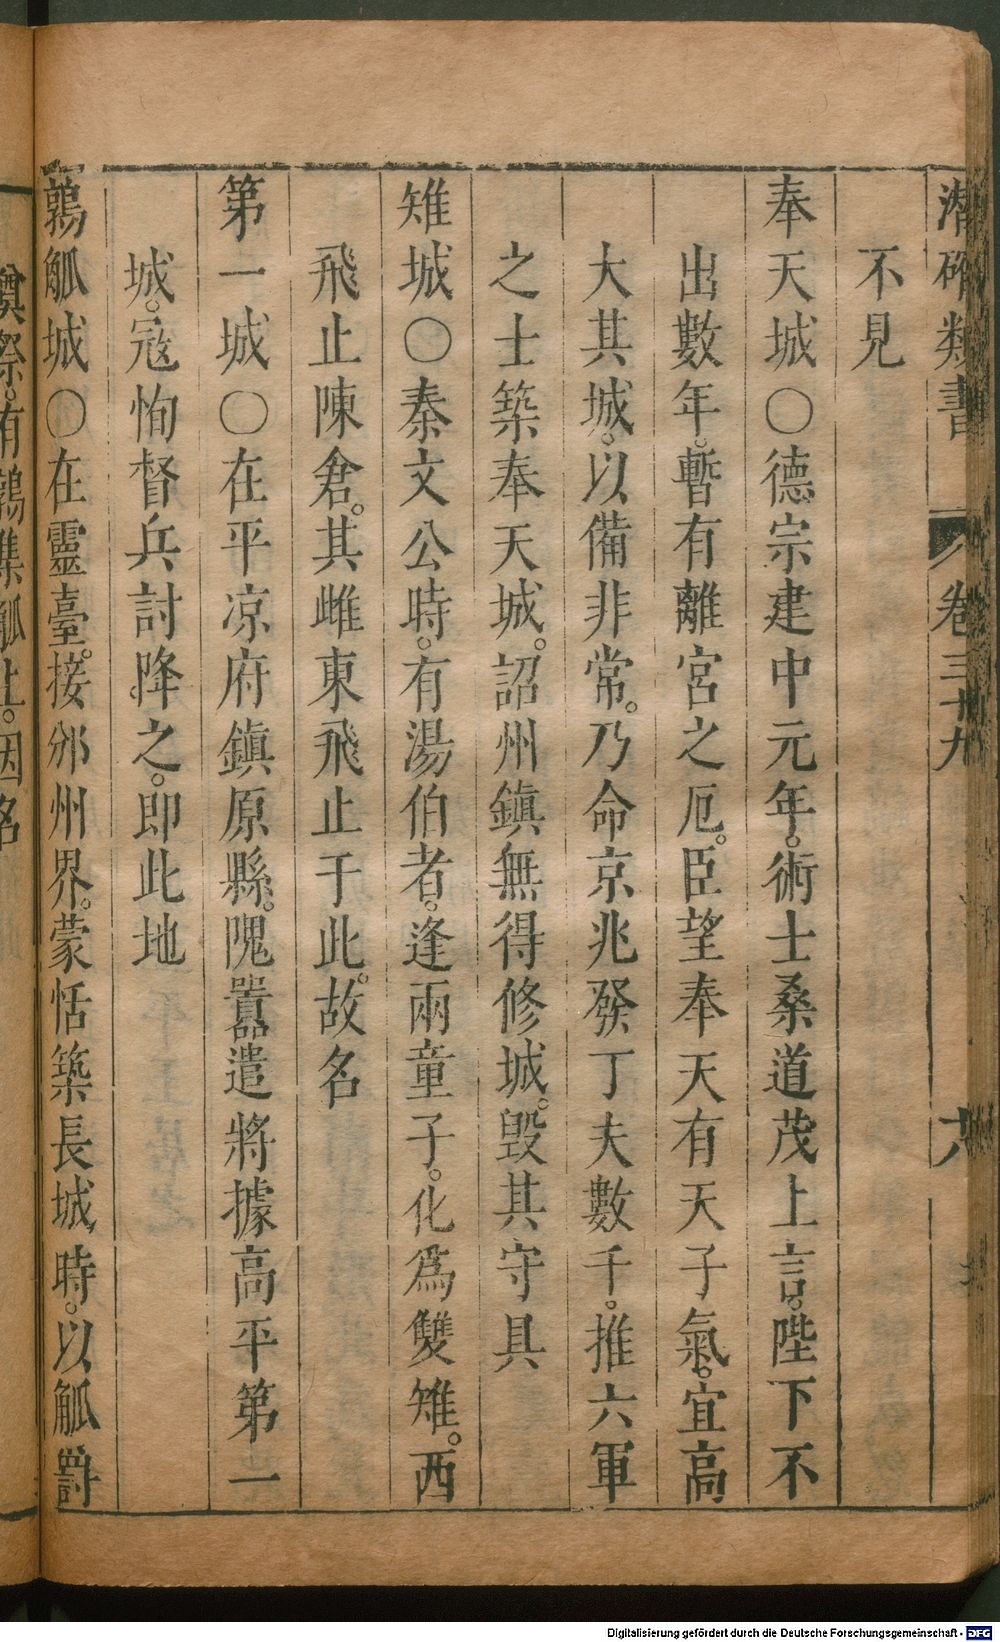 潛確類書 卷三十九 六
不見
奉天城○德宗建中元年。術士桑道茂上言。陛下不
出數年。暫有離宮之厄。臣望奉天有天子氣。宜高
大其城。以備非常。乃命京兆發丁夫數千。推六軍
之士築奉天城。詔州鎮無得修城。毀其守具
雉城○秦文公時。有湯伯者。逢兩童子。化為雙雉。西
飛止陳倉。其雌東飛止于此。故名
第一城○在平凉府鎮原縣。隗囂遣將據高平第一
城。寇恂督兵討降之。即此地
鶉觚城○在靈臺。接邠州界。蒙恬築長城時。以觚爵
奠祭。有鶉集觚上。因名
Digitalisierung gefördert durch die Deutsche Forschungsgemeinschaft - DFG